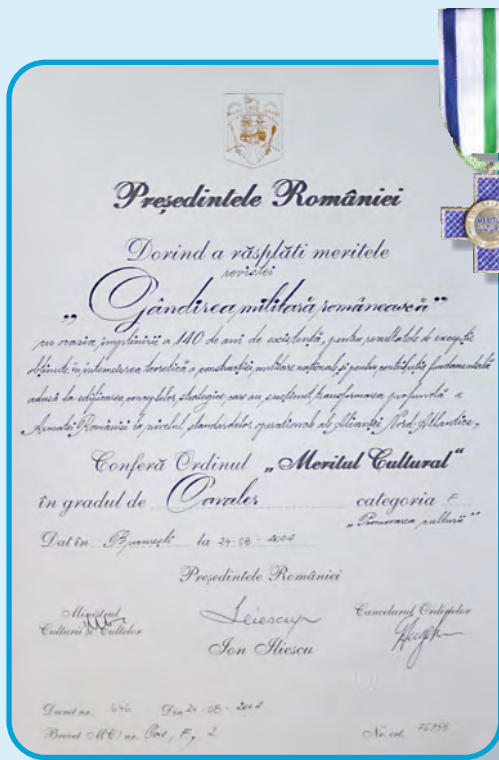 Președintele României
Dorind a răsplăti meritele
revistei
„Gândirea militară românească”
cu ocazia împlinirii a 140 de ani de existență, pentru rezultatele de excepție
obținute în întemeierea teoretică a construcției militare naționale și pentru contribuția fundamentală
adusă la edificarea conceptelor strategice care au susținut transformarea profundă a
Armatei României la nivelul standardelor operaționale ale Alianței Nord-Atlantice,
Conferă Ordinul „Meritul Cultural“
în gradul de Cavaler categoria F
„Promovarea culturii”
Dat în București la 24-08-2004
Președintele României
Ministrul
Culturii și Cultelor
Cancelarul Ordinelor
Ion Iliescu
Decret nr. 646 Din 24-08-2004
Brevet MC/nr. Cav, F, 2 Nr. crt. 76955